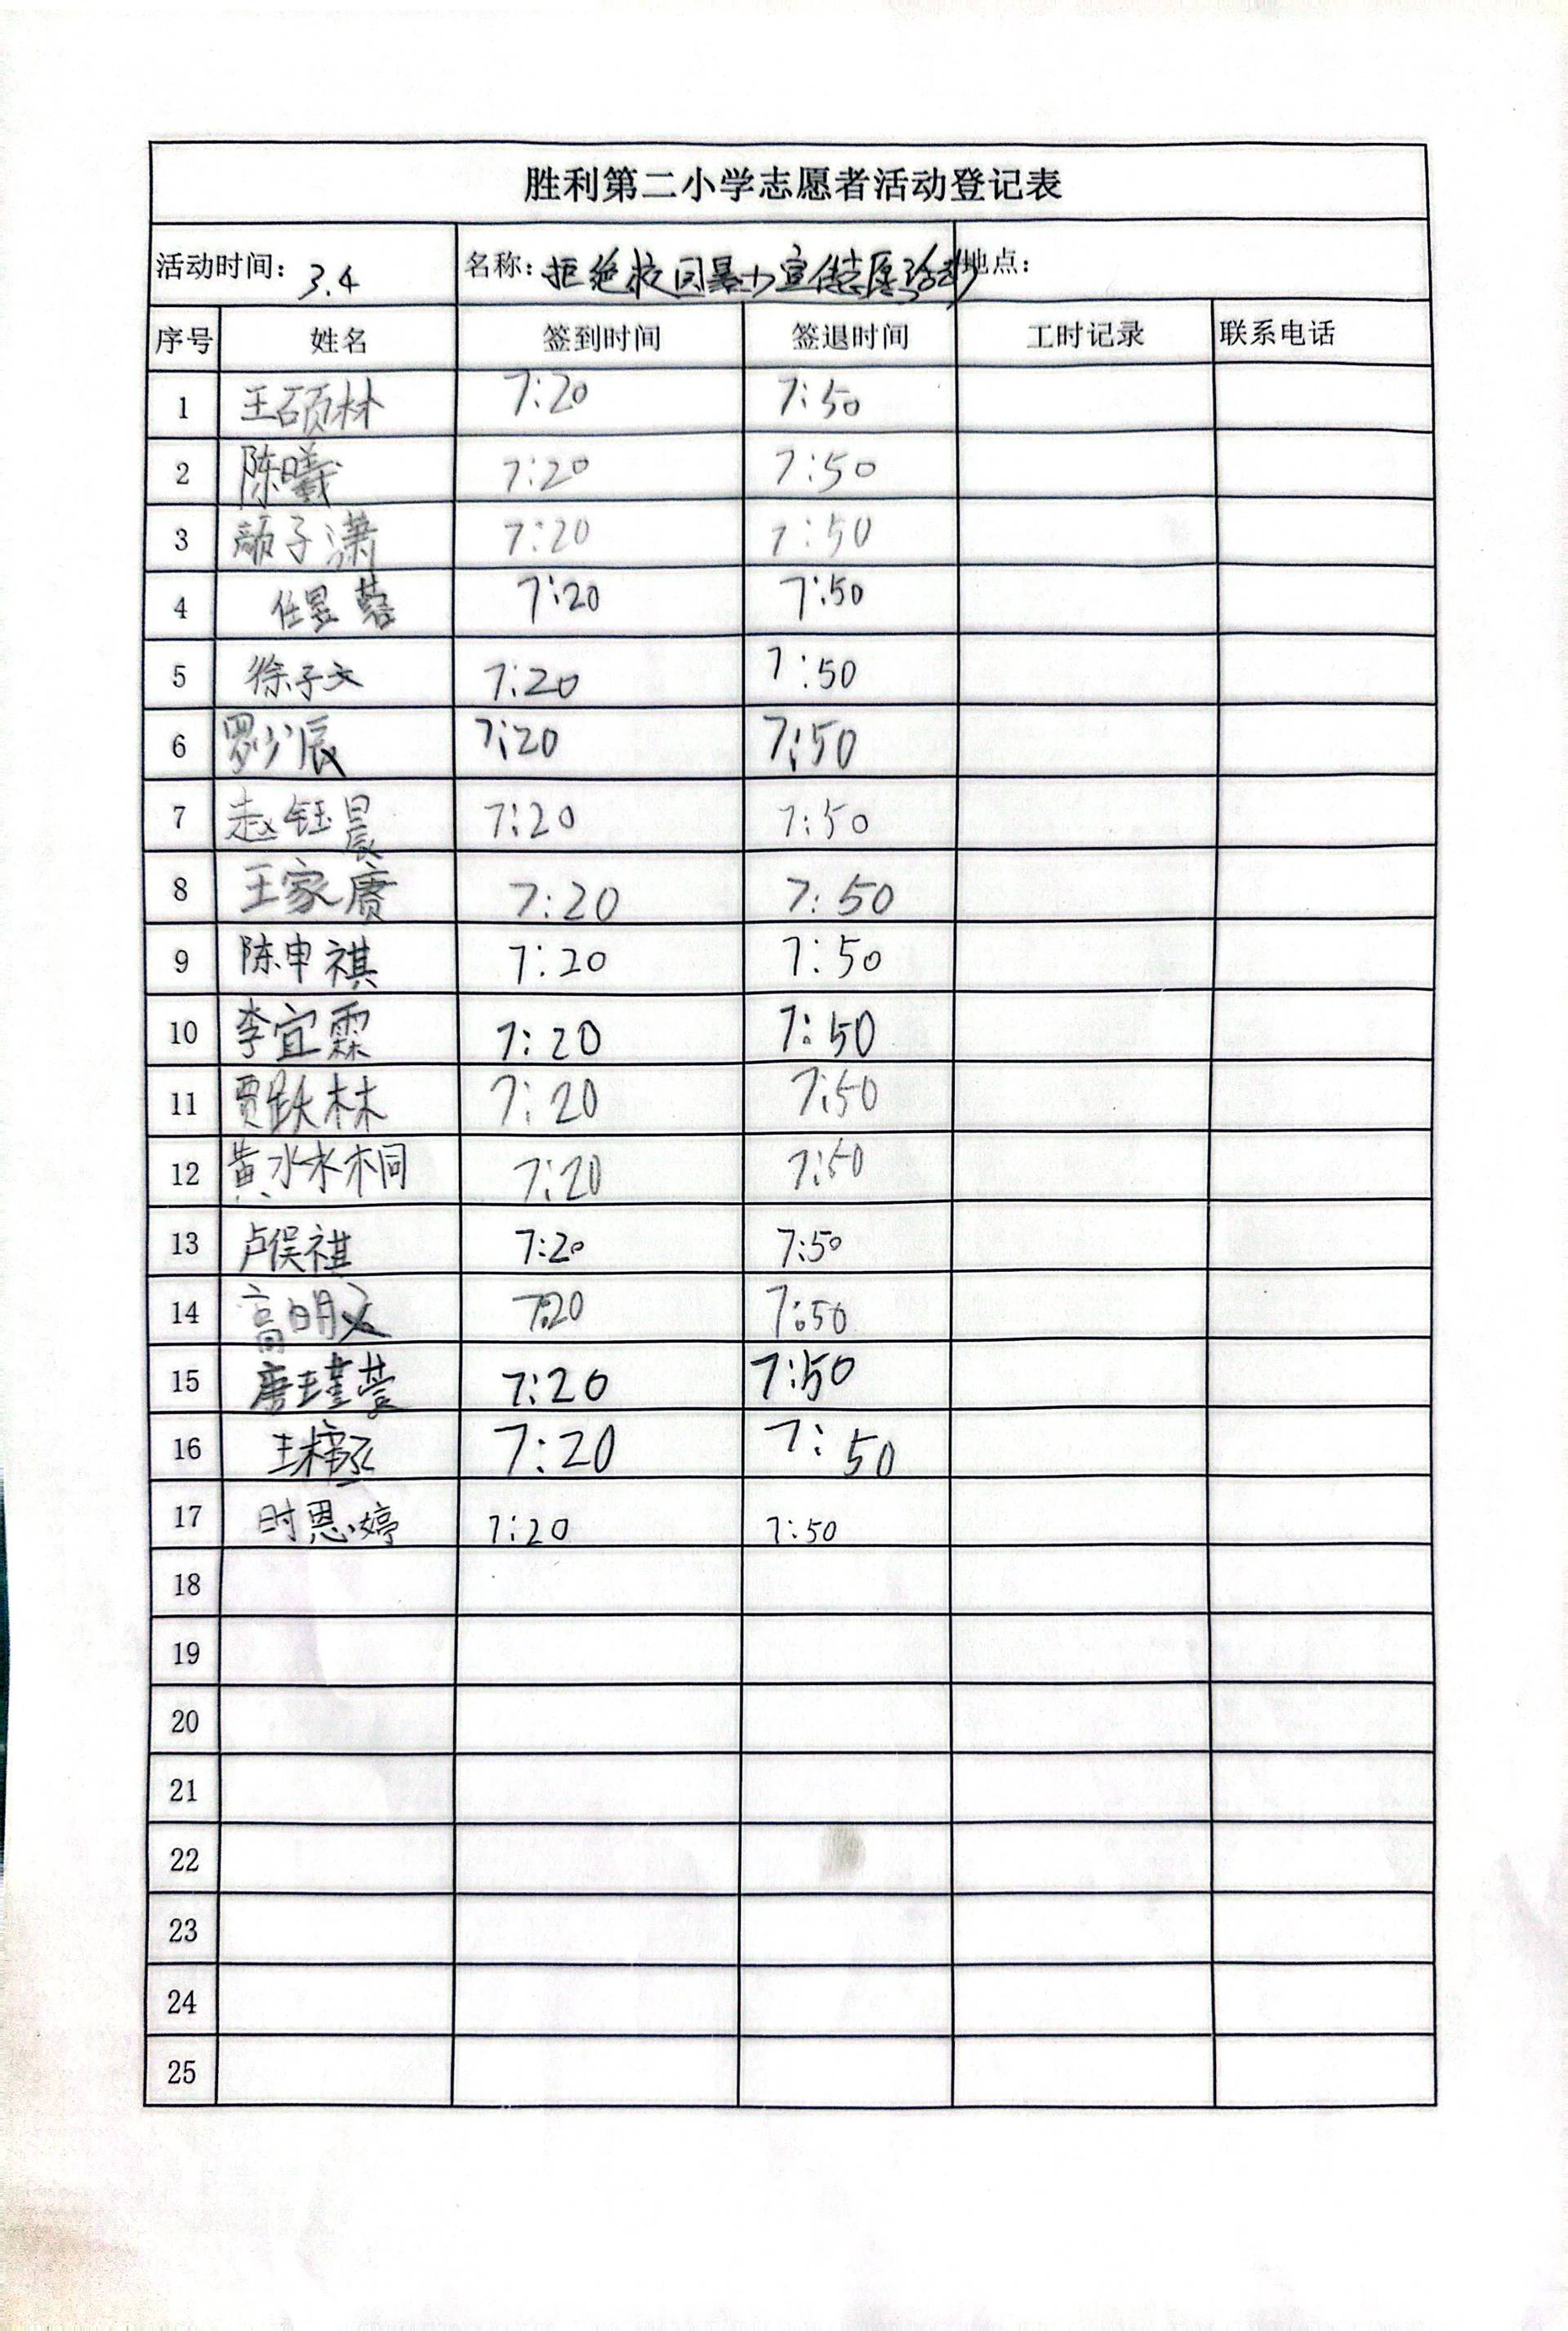 胜利第二小学志愿者活动登记表
活动时间: 3.4 名称: 拒绝校园暴力宣传志愿活动 地点:
序号 姓名 签到时间 签退时间 工时记录 联系电话
1 王硕林 7:20 7:50
2 陈曦 7:20 7:50
3 颜子潇 7:20 7:50
4 任昱蓉 7:20 7:50
5 徐子文 7:20 7:50
6 罗少辰 7:20 7:50
7 赵钰晨 7:20 7:50
8 王家赓 7:20 7:50
9 陈申祺 7:20 7:50
10 李宜霖 7:20 7:50
11 贾跃林 7:20 7:50
12 黄冰沐桐 7:20 7:50
13 卢俣祺 7:20 7:50
14 高明 7:20 7:50
15 唐瑾萱 7:20 7:50
16 王 7:20 7:50
17 时恩婷 7:20 7:50
18
19
20
21
22
23
24
25